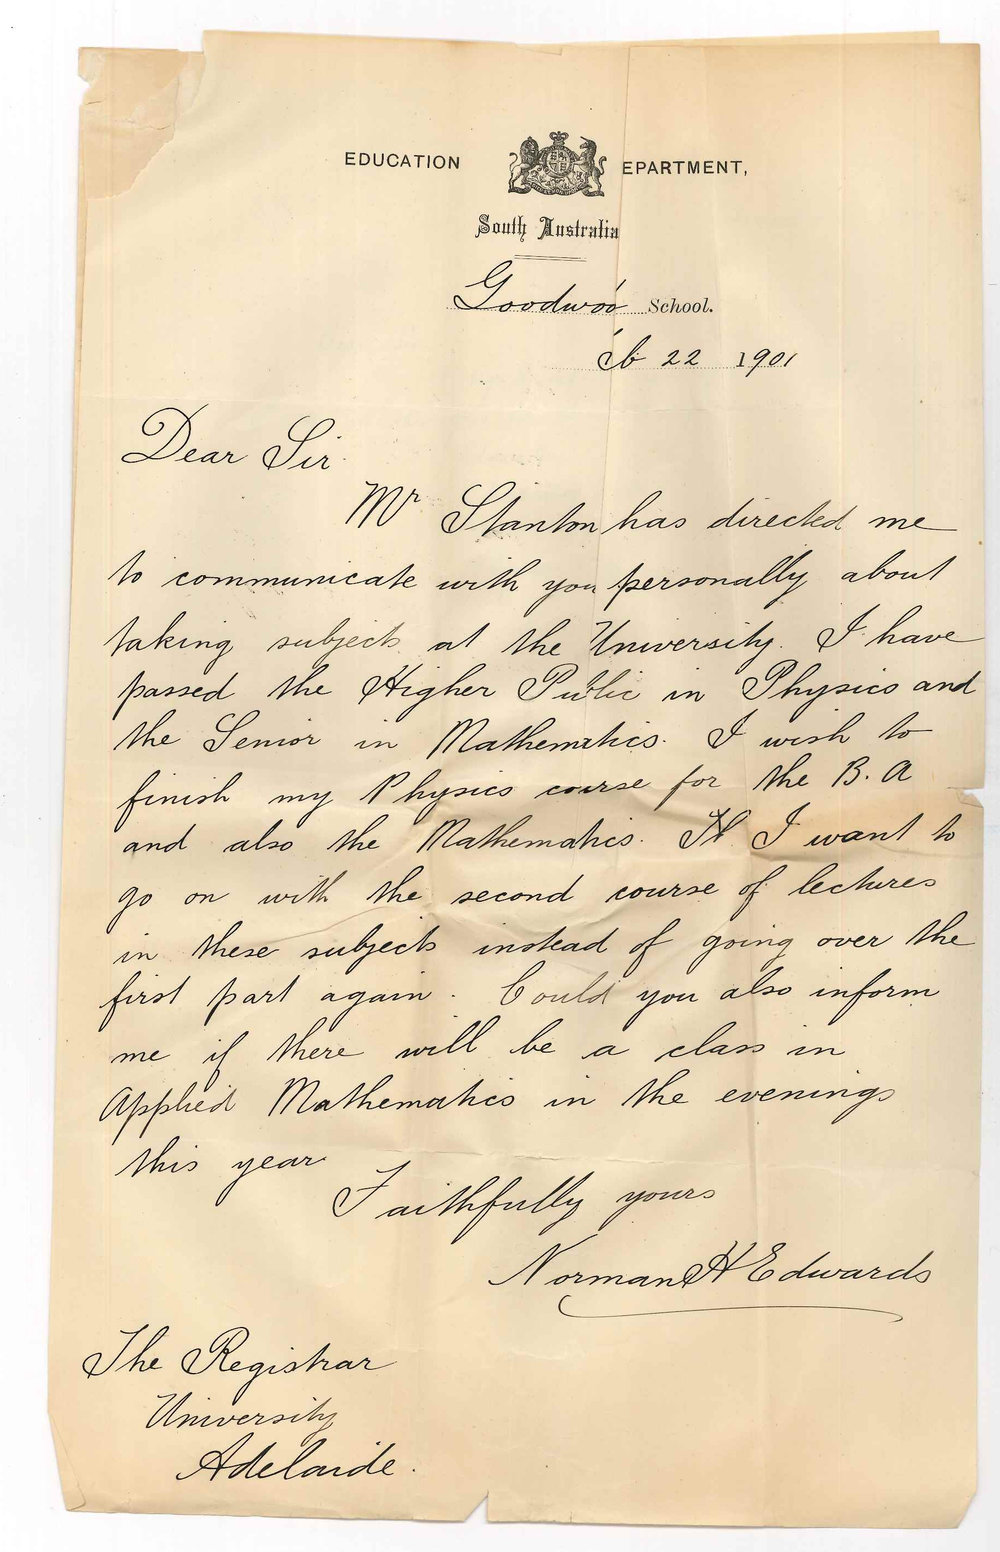 EDUCATION EPARTMENT,
South Australia
Goodwoo School.
eb 22 1901
Dear Sir
Mr Stanton has directed me
to communicate with you personally about
taking subjects at the University. I have
passed the Higher Public in Physics and
the Senior in Mathematics. I wish to
finish my Physics course for the B. A
and also the Mathematics. I want to
go on with the second course of lectures
in these subjects instead of going over the
first part again. Could you also inform
me if there will be a class in
Applied Mathematics in the evenings
this year
Faithfully yours
Norman H Edwards
The Registrar
University
Adelaide.